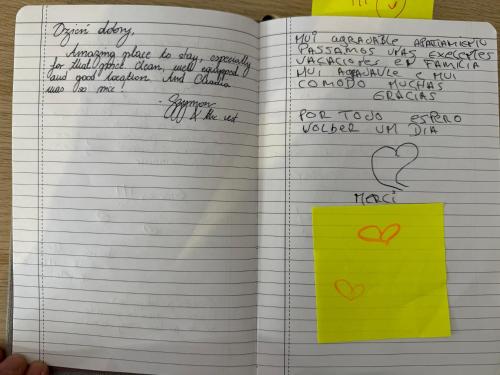 Dzień dobry,
Amazing place to stay, especially
for that price. Clean, well equipped
and good location. And
was so nice!
- Szymon
& the rest
MUI AGRADABLE APARTAMIENTO
PASSAMOS UNAS EXELENTES
VACACIONES EN FAMILIA
MUI AGRADAVLE E MUI
COMODO MUCHAS
GRACIAS
POR TODO ESPERO
VOLBER UM DIA
MERCI